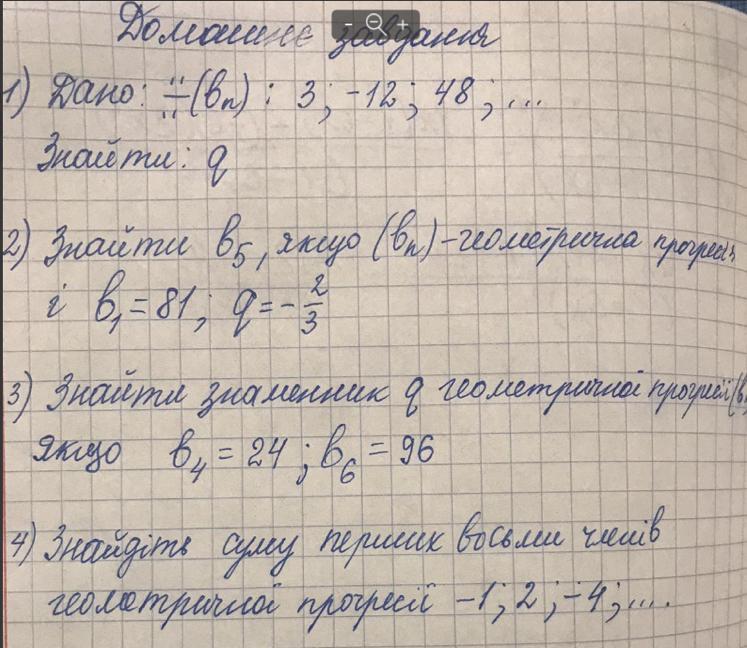 Домашнє завдання
1) Дано: ∺(bₙ) : 3; -12; 48; ...
Знайти: q
2) Знайти b₅, якщо (bₙ) - геометрична прогресія
і b₁ = 81; q = -2/3
3) Знайти знаменник q геометричної прогресії (bₙ
якщо b₄ = 24; b₆ = 96
4) Знайдіть суму перших восьми членів
геометричної прогресії -1; 2; -4; ....